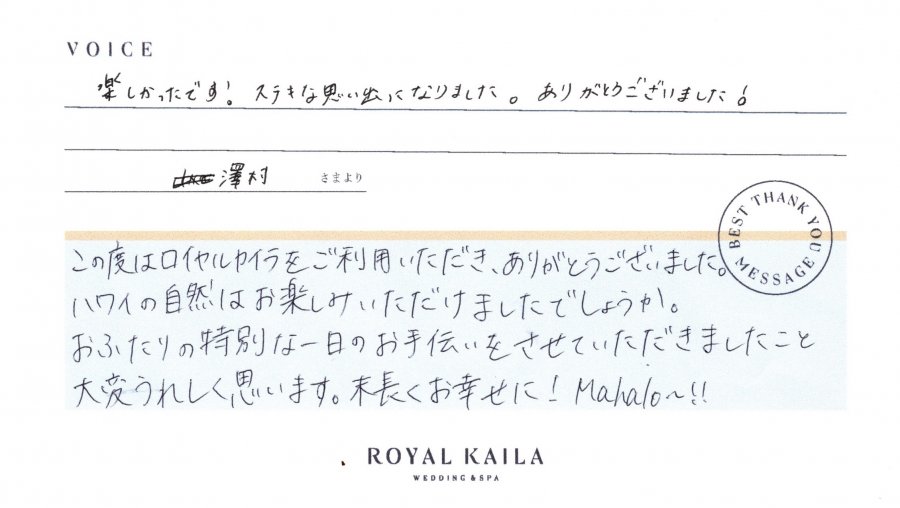 VOICE
楽しかったです! ステキな思い出になりました。ありがとうございました!
澤村 さまより
BEST THANK YOU MESSAGE
この度はロイヤルカイラをご利用いただき、ありがとうございました。
ハワイの自然はお楽しみいただけましたでしょうか。
おふたりの特別な一日のお手伝いをさせていただきましたこと
大変うれしく思います。末長くお幸せに! Mahalo〜!!
ROYAL KAILA
WEDDING & SPA